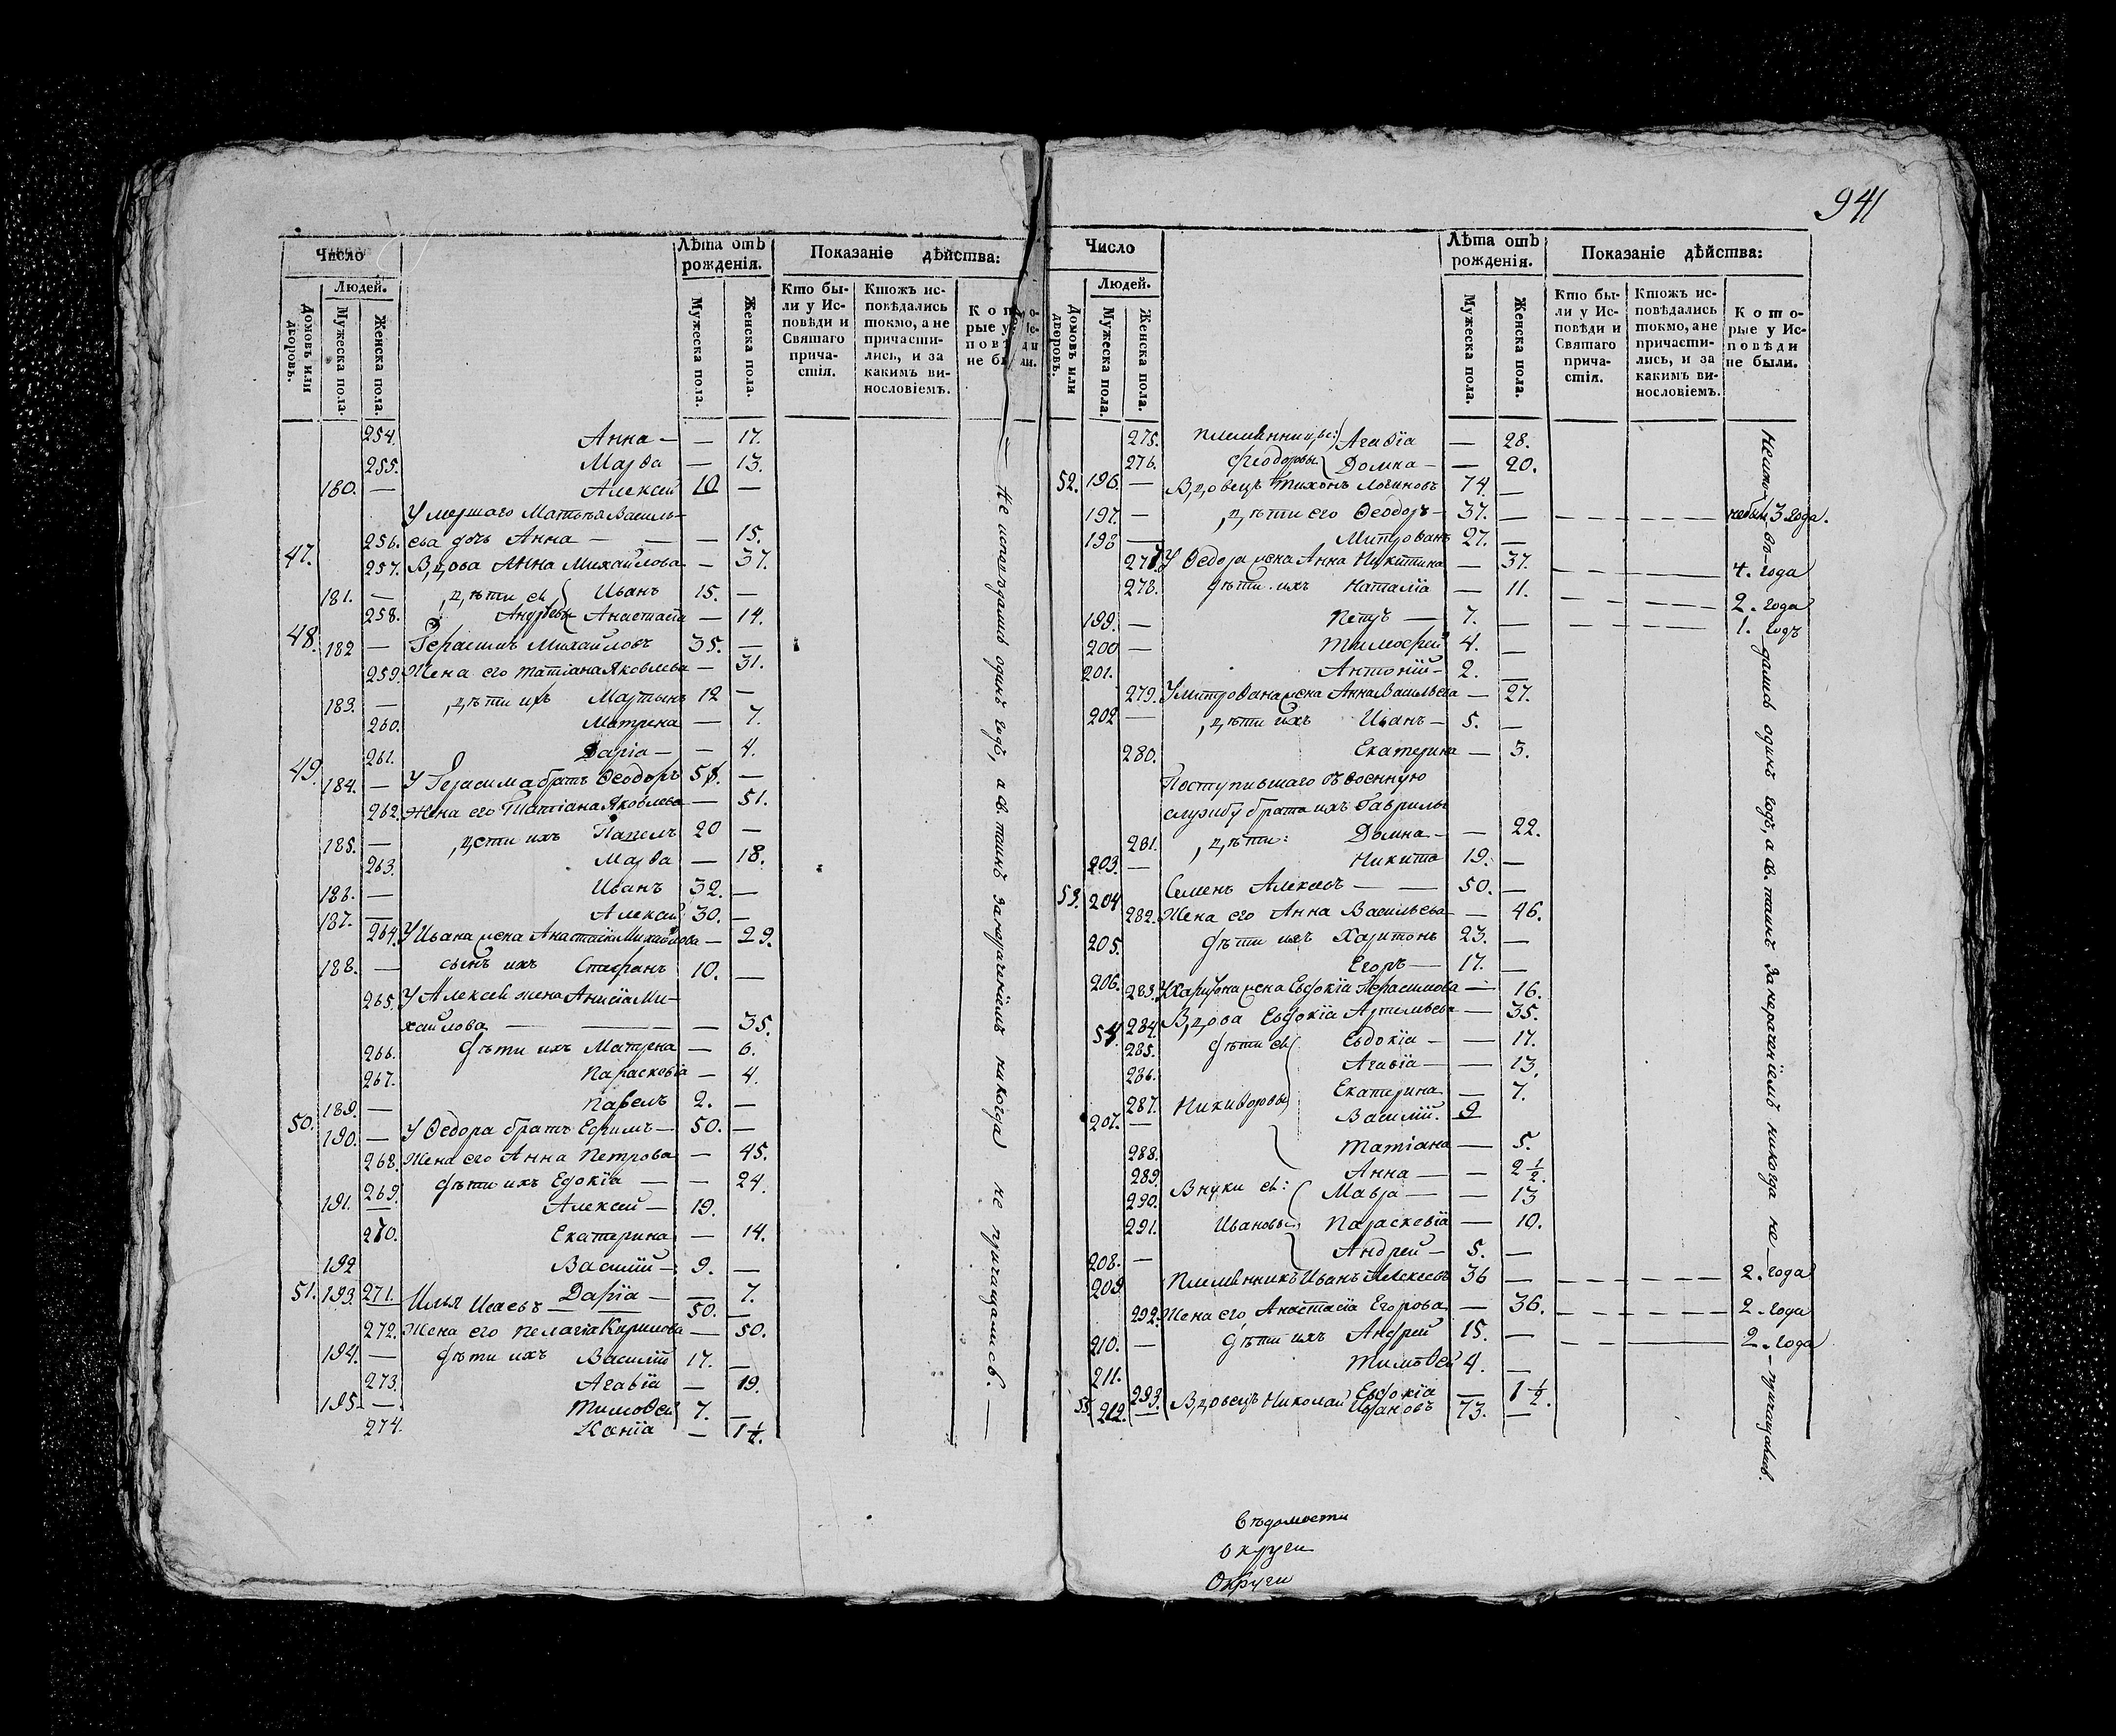 941
Число
Лѣта отъ рожденія.
Показаніе дѣйства:
Людей.
Домовъ или дворовъ.
Мужеска пола.
Женска пола.
Мужеска пола.
Женска пола.
Кто бы-
ли у Ис-
повѣди и
Святаго
прича-
стія.
Ктожъ ис-
повѣдались
токмо, а не
причасти-
лись, и за
какимъ ви-
нословіемъ.
254. Анна — — 17.
255. Марѳа — 13.
180. — Алексей 10 —
Умершаго Матвѣя Василь-
256. ева дочь Анна — — — 15.
47. 257. Вдова Анна Михайлова — 37.
181. — дѣти ея Иванъ 15. —
258. Андреевы Анастасія — 14.
48. 182 — Герасимъ Михайловъ 35. —
259. Жена его Татіана Яковлева — 31.
183. — дѣти ихъ Мартынъ 12 —
260. Матрена — 7.
261. Дарія — — 4.
49. 184. — У Герасима братъ Ѳеодоръ —
262. Жена его Татіана Яковлева — 51.
185. — дѣти ихъ 20 —
263. Марѳа — 18.
186. — Иванъ 32. —
187. — Алексей 30. —
264. У Ивана жена Анастасія Михайлова — 29.
188. — сынъ ихъ Стефанъ 10. —
265. У Алексея жена Анисія Ми-
хайлова — — — 35.
266. дѣти ихъ Матрена — 6.
267. Параскевія — 4.
189. — Павелъ 2. —
50. 190. — У Ѳедора братъ Ефимъ — 50. —
268. Жена его Анна Петрова — 45.
269. дѣти ихъ Едокія — — 24.
191. — Алексей — 19.
270. Екатерина — 14.
192 Василій — 9. —
271. Дарія — — 7.
51. 193. — Илья Исаевъ — — 50. —
272. Жена его Пелагія Кирилова — 50.
194. — дѣти ихъ Василій 17. —
273. Агавія — 19.
195. — Тимоѳей 7. —
274. Ксенія — 1½.
Не исповѣдались одинъ годъ, а св. таинъ за нераченіемъ никогда не причащались. —
Число
Лѣта отъ рожденія.
Показаніе дѣйства:
Людей.
Домовъ или дворовъ.
Мужеска пола.
Женска пола.
Мужеска пола.
Женска пола.
Кто бы-
ли у Ис-
повѣди и
Святаго
прича-
стія.
Ктожъ ис-
повѣдались
токмо, а не
причасти-
лись, и за
какимъ ви-
нословіемъ.
Кото-
рые у Ис-
повѣди
не были.
275. племянницы: Агавія — 28.
276. Ѳеодоровы Домна — — 20.
52. 196. — Вдовецъ Тихонъ Логиновъ 74. —
197. — дѣти его Ѳеодоръ — 37. — не были 3 года.
198 — Митрованъ 27. —
277. У Ѳедора жена Анна Никитина — 37. 4. года
278. дѣти ихъ Наталія — 11. 2. года
199. — Петръ — 7. — 1. годъ
200 — Тимофей 4. —
201. Антоній — 2. —
279. У Митрована жена Анна Васильева — 27.
202 — дѣти ихъ Иванъ — 5. —
280. Екатерина — 3.
Поступившаго въ военную
службу брата ихъ Гаврилы
281. дѣти: Домна — — 22.
203. — Никита 19. —
53. 204 Семенъ Алексеевъ — — 50. —
282. Жена его Анна Васильева — 46.
205. дѣти ихъ Харитонъ 23. —
206. Егоръ — 17. —
283. У Харитона жена Евдокія Герасимова — 16.
54. 284. Вдова Евдокія Артемьева — 35.
285. дѣти ея Евдокія — — 17.
286. Агавія — — 13.
287. Никиѳоровы Екатерина — 7.
207. — Василій. 9
288. Татіана — 5.
289. Анна — — 2½.
290. Внуки ея: Мавра — — 13
291. Ивановы Параскевія — 10.
208. — Андрей — 5. —
209 Племянникъ Иванъ Алексеевъ 36 — 2. года
292. Жена его Анастасія Егорова — 36. 2. года
210. — дѣти ихъ Андрей 15. — 2. года
211. Тимоѳей 4. —
293. Евдокія — 1½.
55. 212. — Вдовецъ Николай Ивановъ 73. —
одинъ годъ, а св. таинъ за нераченіемъ никогда не — причащались.
Вѣдомости
Округи
Округи